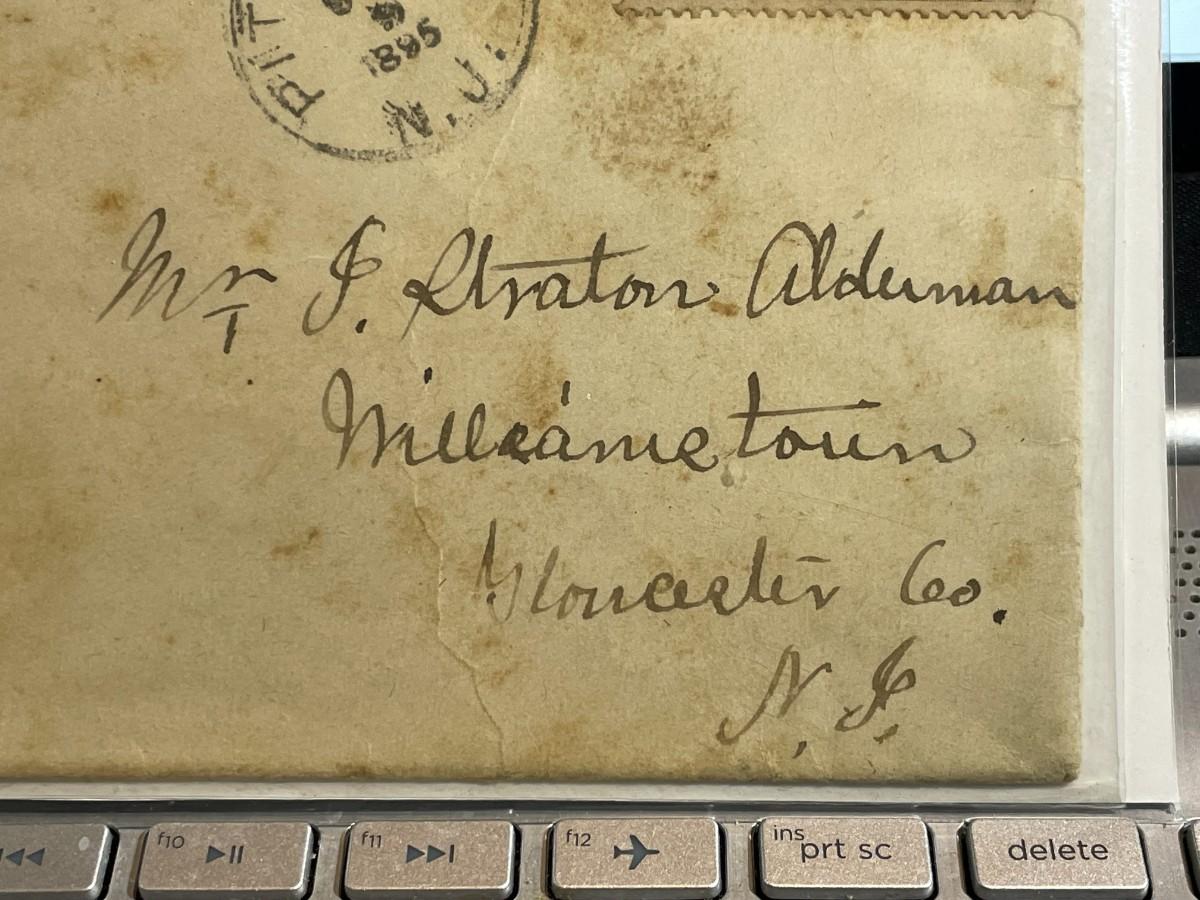 PIT
1895
N. J.
Mr J. Straton Alderman
Williamstown
Gloucester Co.
N. J.
f10
f11
f12
ins
prt sc
delete